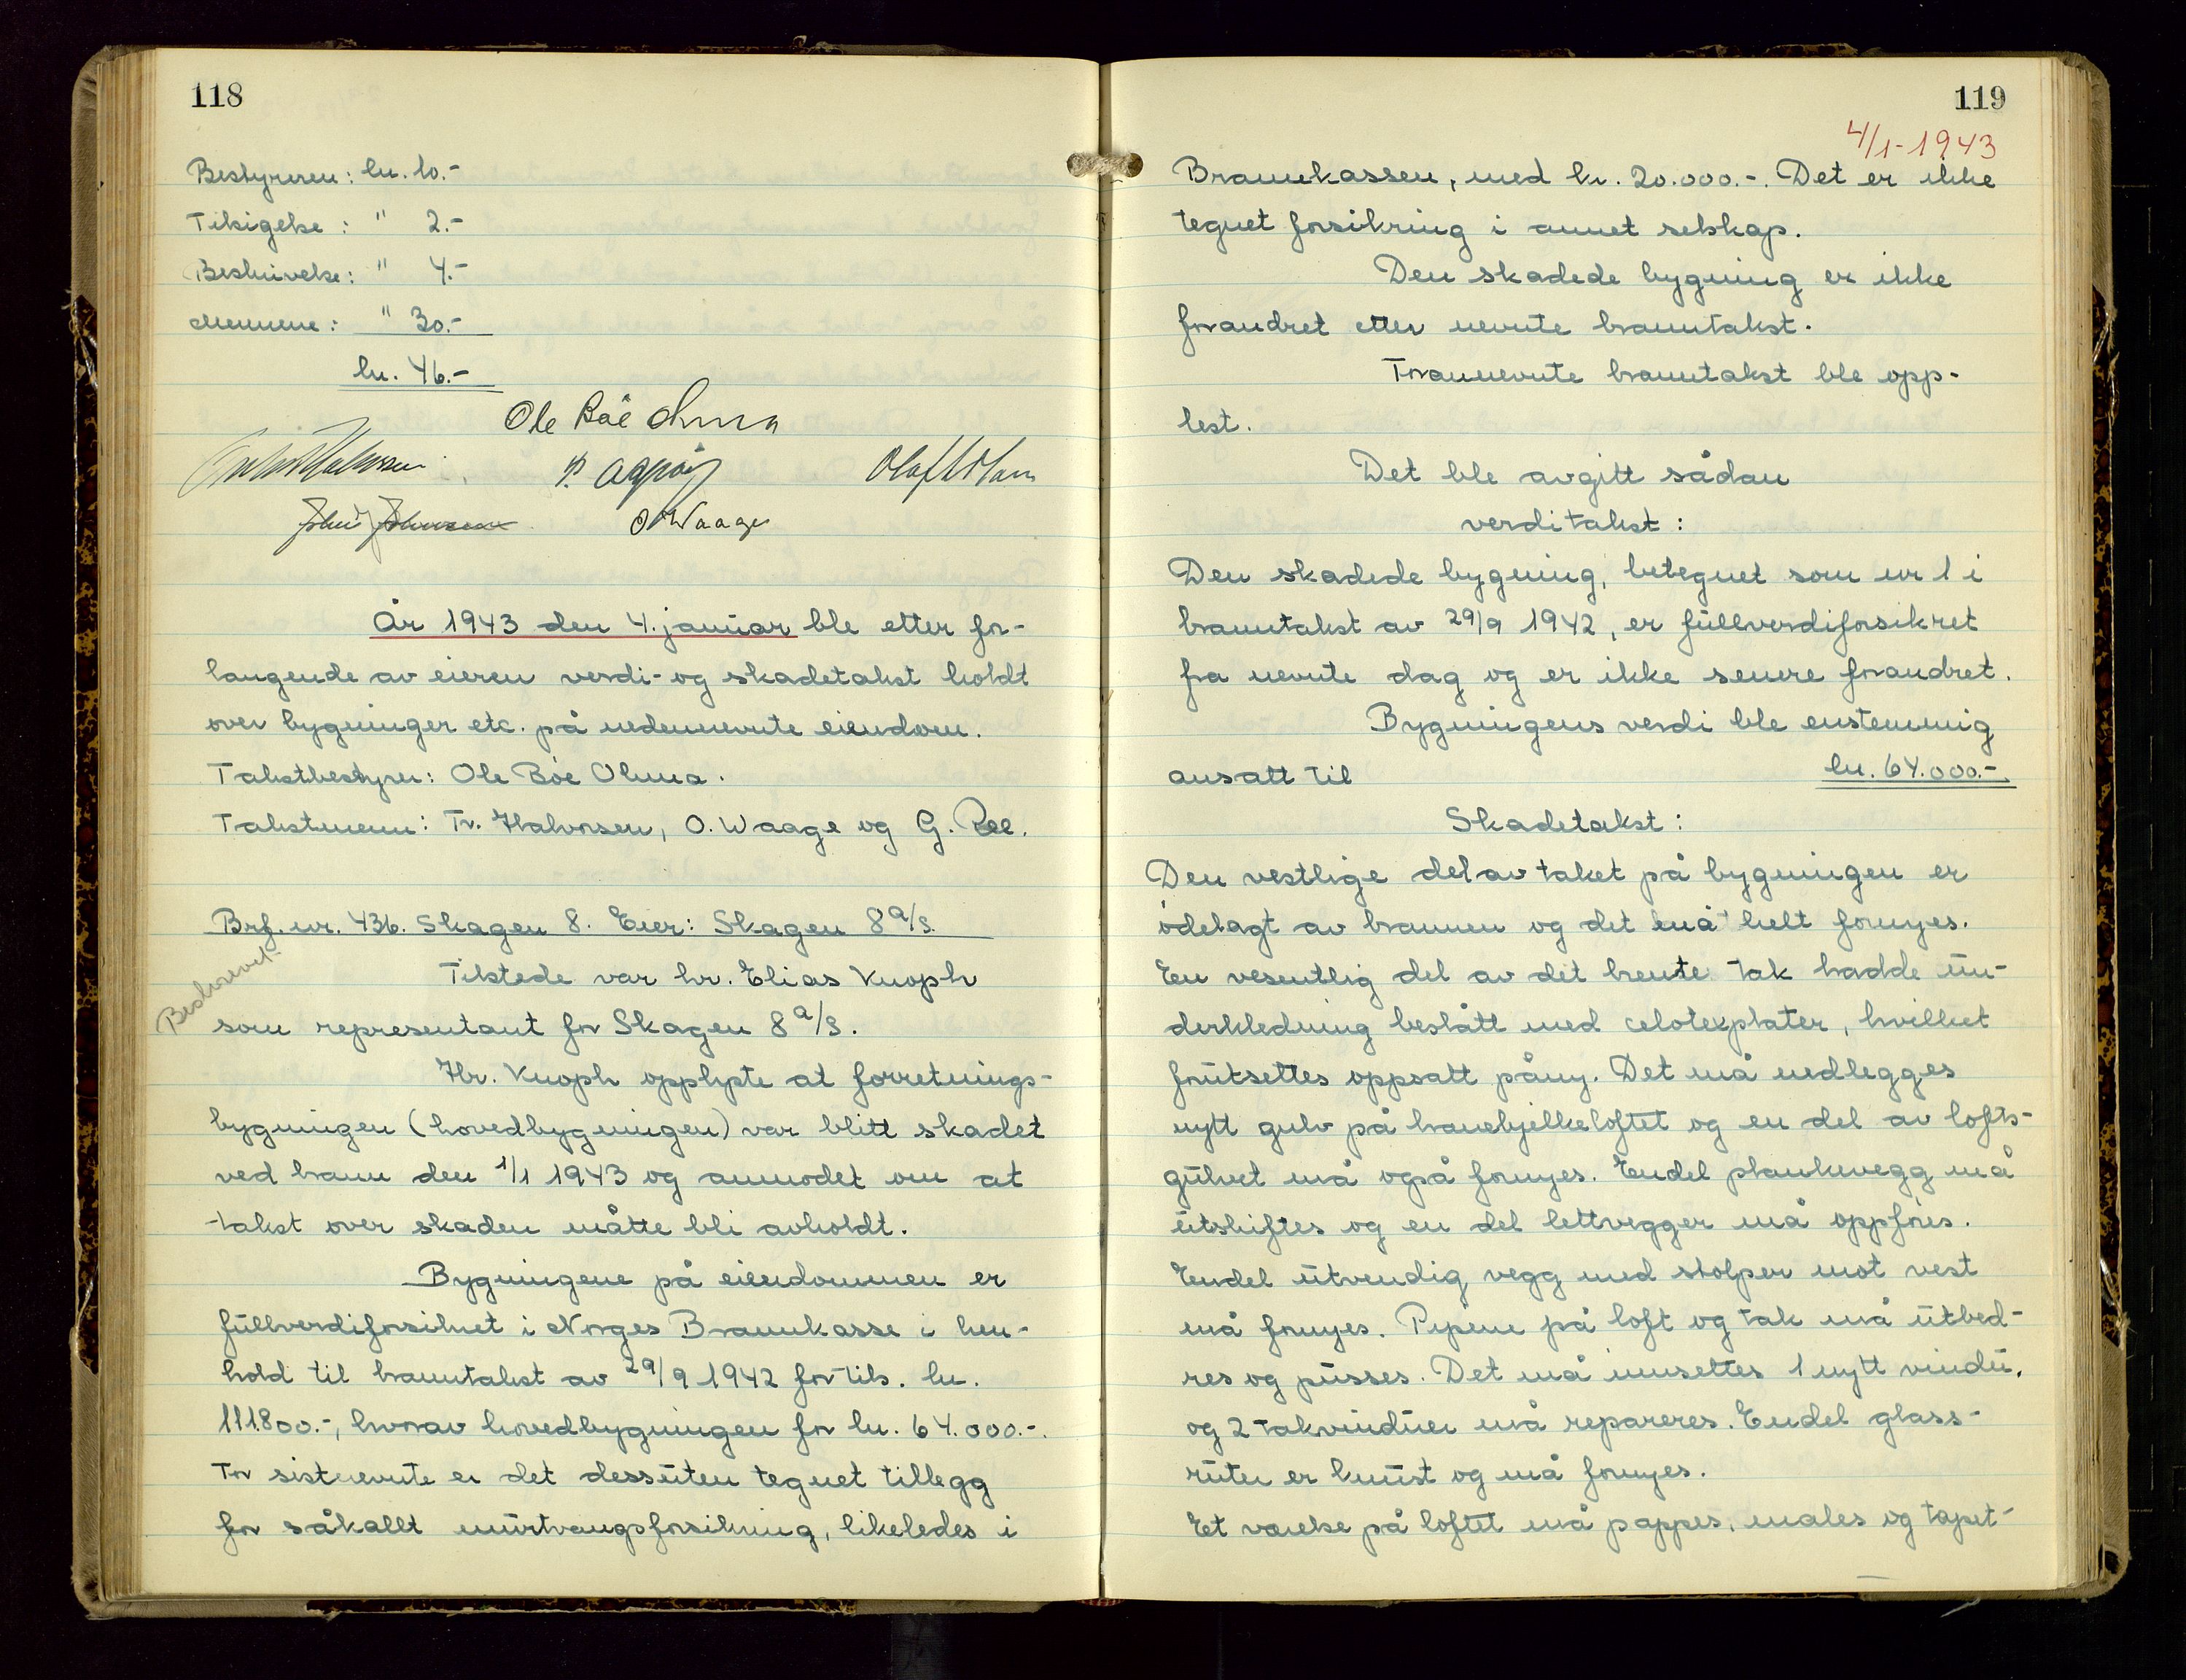 118
Bestyreren: kr. 10.-
Tilsigelse: " 2.-
Beskrivelse: " 4.-
Mennene: " 30.-
kr. 46.-
Ole Bøe Olmra
Halvorsen
John Johnsen O Waage
År 1943 den 4. januar ble etter for-
langende av eieren verdi- og skadetakst holdt
over bygninger etc. på nedennevnte eiendom.
Takstbestyrer: Ole Bøe Olmra.
Takstmenn: Tr. Halvorsen, O. Waage og G. Ree.
Brf. nr. 436. Skagen 8. Eier: Skagen 8 a/s.
Beskrevet
Tilstede var hr. Elias Knoph
som representant for Skagen 8 a/s.
Hr. Knoph opplyste at forretnings-
bygningen (hovedbygningen) var blitt skadet
ved brann den 1/1 1943 og anmodet om at
takst over skaden måtte bli avholdt.
Bygningene på eiendommen er
fullverdiforsikret i Norges Brannkasse i hen-
hold til branntakst av 29/9 1942 for tils. kr.
111.800.-, hvorav hovedbygningen for kr. 64.000.-.
For sistnevnte er det dessuten tegnet tillegg
for såkallt murtvangsforsikring, likeledes i
119
4/1-1943
Brannkassen, med kr. 20.000.-. Det er ikke
tegnet forsikring i annet selskap.
Den skadede bygning er ikke
forandret etter nevnte branntakst.
Forannevnte branntakst ble opp-
lest.
Det ble avgitt sådan
verditakst:
Den skadede bygning, betegnet som nr 1 i
branntakst av 29/9 1942, er fullverdiforsikret
fra nevnte dag og er ikke senere forandret.
Bygningens verdi ble enstemmig
ansatt til kr. 64.000.-
Skadetakst:
Den vestlige del av taket på bygningen er
ødelagt av brannen og det må helt fornyes.
En vesentlig del av det brente tak hadde un-
derkledning beslått med celotexplater, hvilket
forutsettes oppsatt påny. Det må nedlegges
nytt gulv på hanebjelkeloftet og en del av lofts-
gulvet må også fornyes. Endel plankevegg må
utskiftes og en del lettvegger må oppføres.
Endel utvendig vegg med stolper mot vest
må fornyes. Pipene på loft og tak må utbed-
res og pusses. Det må innsettes 1 nytt vindu,
og 2 takvinduer må repareres. Endel glass-
ruter er knust og må fornyes.
Et værelse på loftet må pappes, males og tapet-